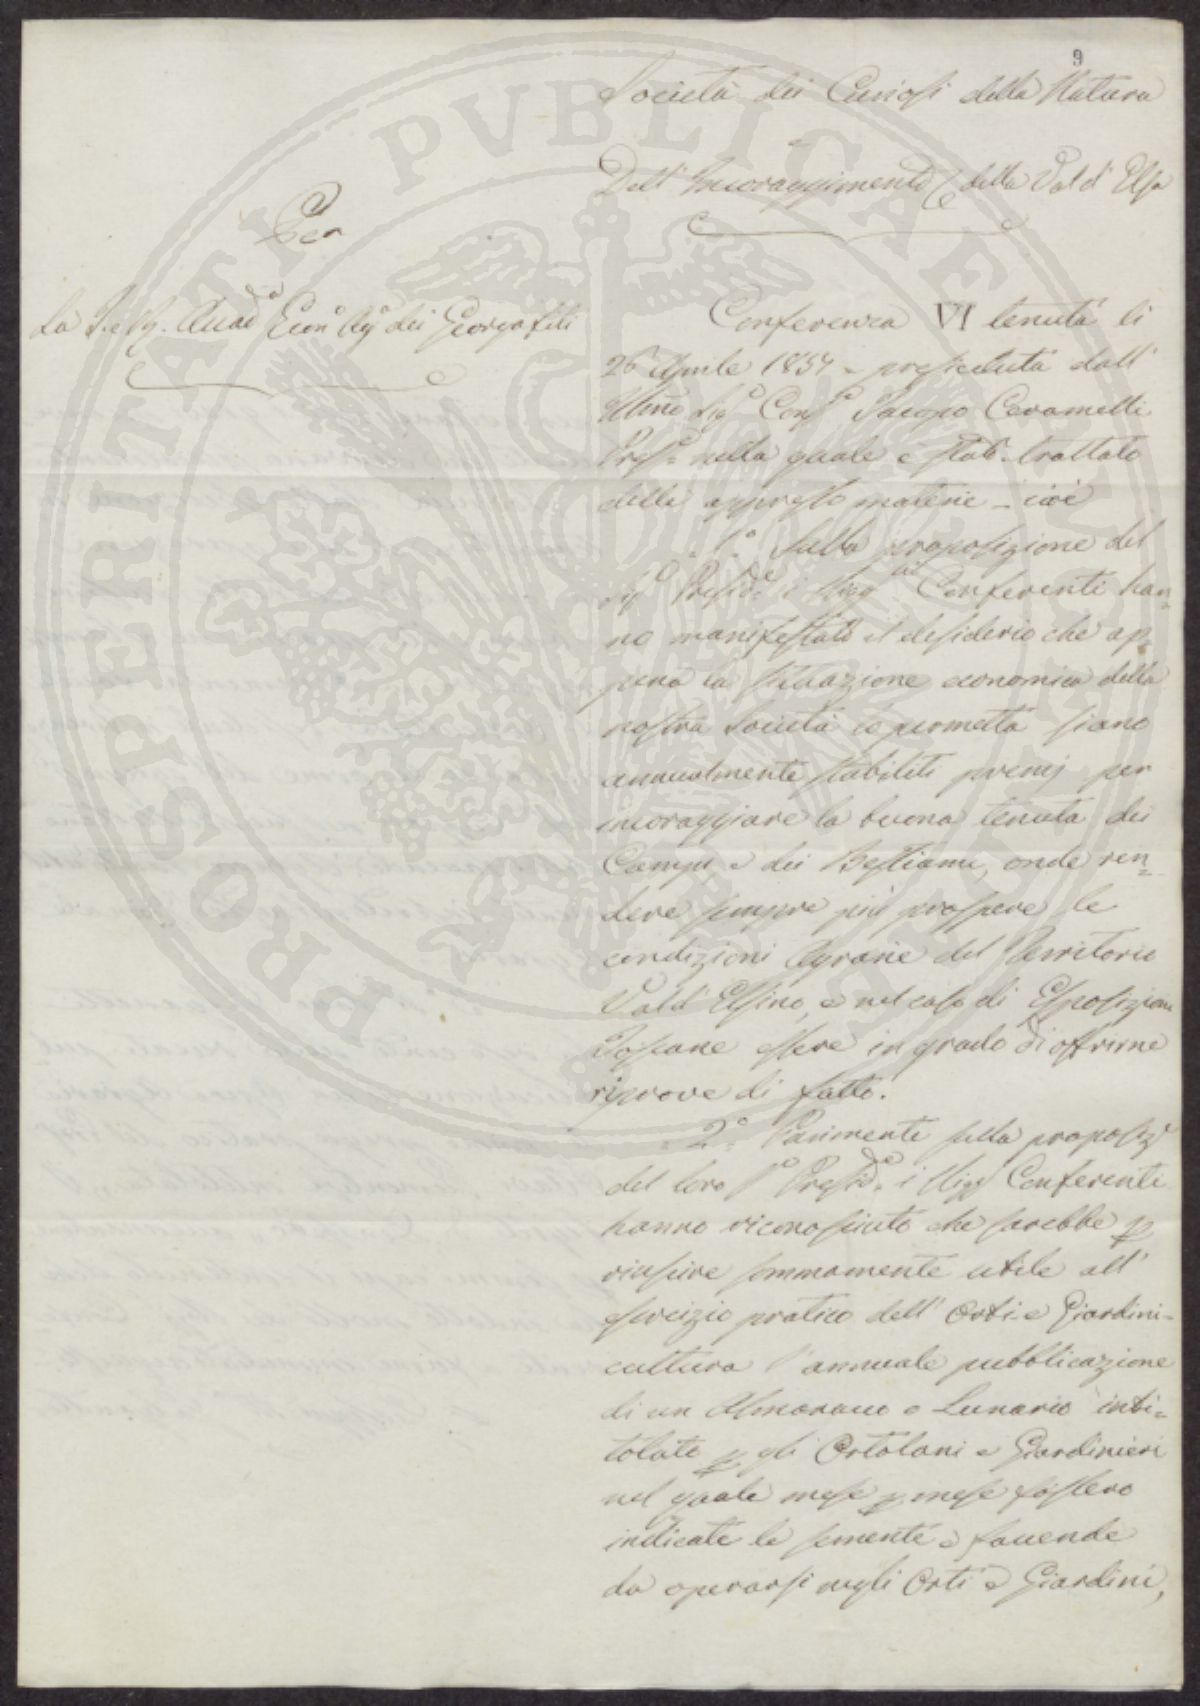 9
Società dei Curiosi della Natura
Dell' Incoraggimento della Val d' Elsa
Per
La I. e R. Accad.ª Econ.º Ag.ª dei Georgofili
Conferenza VI tenuta li
26 Aprile 1854 presieduta dall'
Illmo Sig.e Conf.e Jacopo Caramelli
Presid.e nella quale è stato trattato
delle appresso materie - cioè
1.º Sulla proposizione del
Sig.e Presid.e i Sigg.ri Conferenti han=
no manifestato il desiderio che ap=
pena la situazione economica della
nostra Società lo permetta siano
annualmente stabiliti premj per
incoraggiare la buona tenuta dei
Campi e dei Bestiami, onde ren=
dere sempre più prospere le
condizioni Agrarie del Territorio
Vald' Elsino, e nel caso di Esposizioni
Toscane essere in grado di offrirne
riprove di fatto.
2.º Parimente sulla proposiz.e
del loro S.e Presid.e i Sigg.i Conferenti
hanno riconosciuto che sarebbe p
riuscire sommamente utile all'
esercizio pratico dell' Orti e Giardini=
cultura l' annuale pubblicazione
di un Almanacco o Lunario inti=
tolato p gli Ortolani e Giardinieri
nel quale mese p mese fossero
indicate le semente e faccende
da operarsi negli Orti e Giardini,
PROSPERITATI PVBLICAE